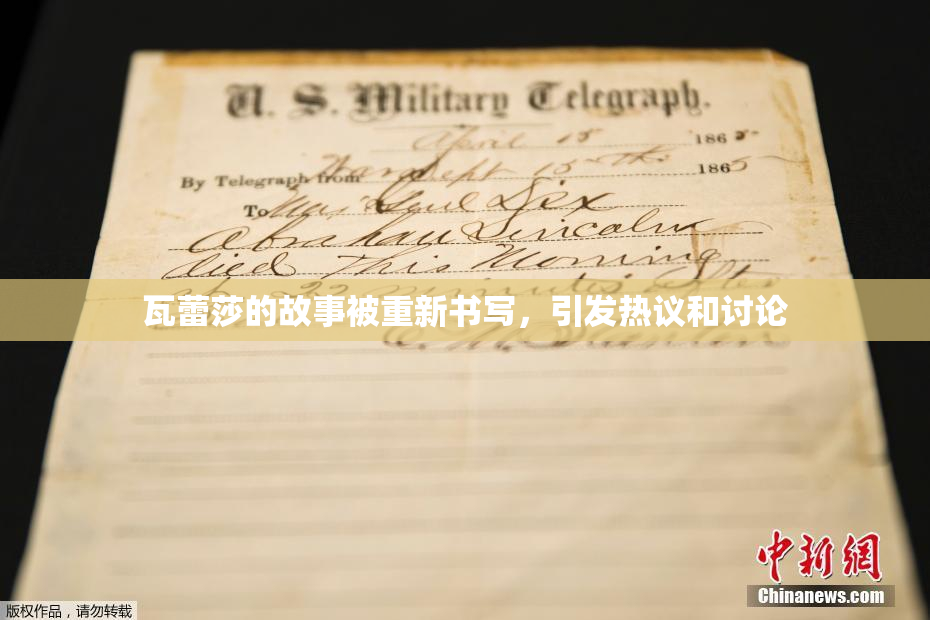 U. S. Military Telegraph.
April 15 1865
By Telegraph from War Dept 15th 1865
To Maj Genl Dix
Abraham Lincoln
died This Morning
at 22 minutes after
瓦蕾莎的故事被重新书写，引发热议和讨论
中新網
Chinanews.com
版权作品，请勿转载